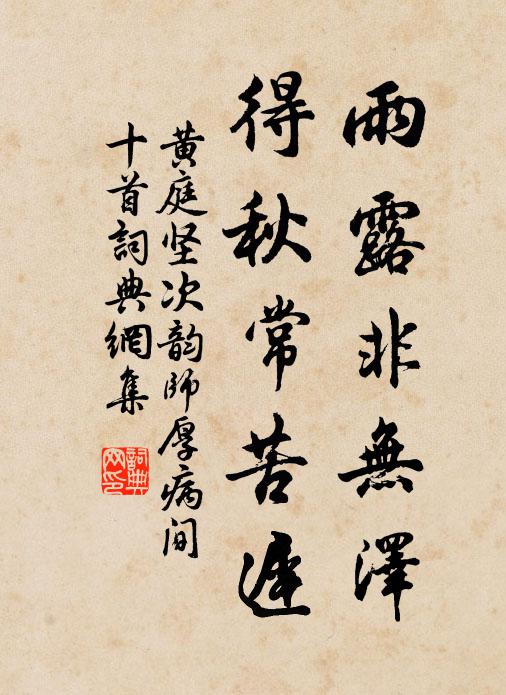 雨露非無澤
得秋常苦遲
黄庭坚次韵師厚病间
十首詞典網集
詞典
网印